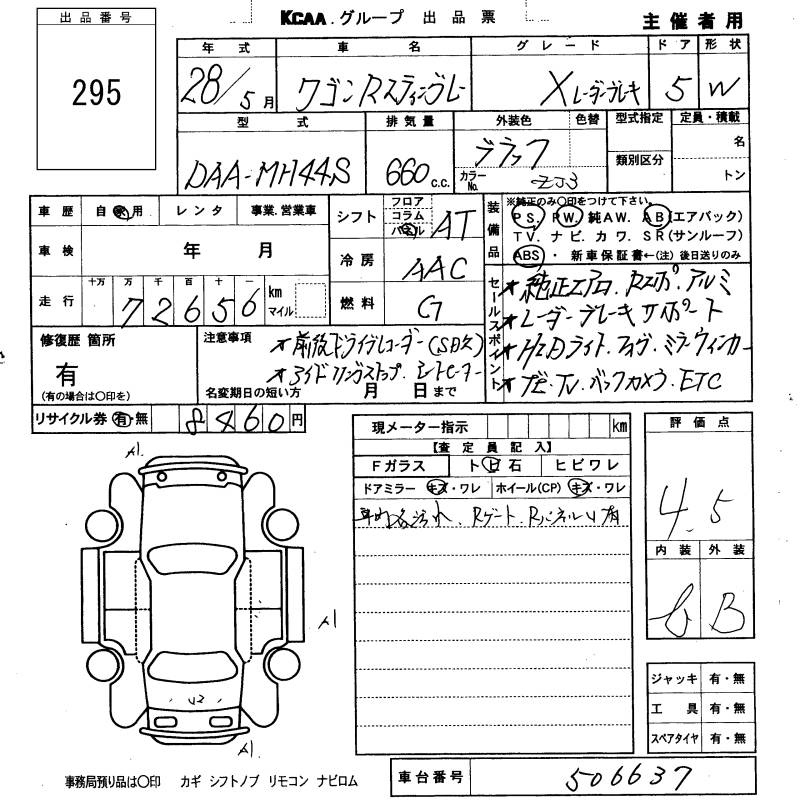 出品番号
295
KCAA.グループ 出品票
主催者用
年式 車名 グレード ドア 形状
28/5月 ワゴンRスティングレー Xレーダーブレーキ 5 W
型式 排気量 外装色 色替 型式指定 定員・積載
DAA-MH44S 660c.c. ブラック 名
カラーNo. ZJ3 類別区分 トン
車歴 自家用 レンタ 事業.営業車
シフト フロア コラム パネル AT
車検 年 月
冷房 AAC
走行 十万 万 千 百 十 一
72656 km マイル
燃料 G
装備品 ※純正のみ〇印をつけて下さい。
PS. PW. 純AW. AB(エアバック)
TV. ナビ. カワ. SR(サンルーフ)
ABS・ 新車保証書←(注)後日送りのみ
セールスポイント
★純正エアロ. Rスポ. アルミ
★レーダーブレーキサポート
★HIDライト. フォグ. ミラーウィンカー
★ナビ. TV. バックカメラ. ETC
修復歴 箇所
有
(有の場合は〇印を)
注意事項 ★前後ドライブレコーダー(SD欠)
★アイドリングストップ. シートヒーター
名変期日の短い方 月 日まで
リサイクル券 有・無 8460円
現メーター指示 km
【査定員記入】
Fガラス ト目石 ヒビワレ
ドアミラー キズ・ワレ ホイール(CP) キズ・ワレ
Rゲート. RパネルU有
評価点
4.5
内装 外装
B
A1
A1
A1
U2
ジャッキ 有・無
工具 有・無
スペアタイヤ 有・無
事務局預り品は〇印 カギ シフトノブ リモコン ナビロム
車台番号 506637